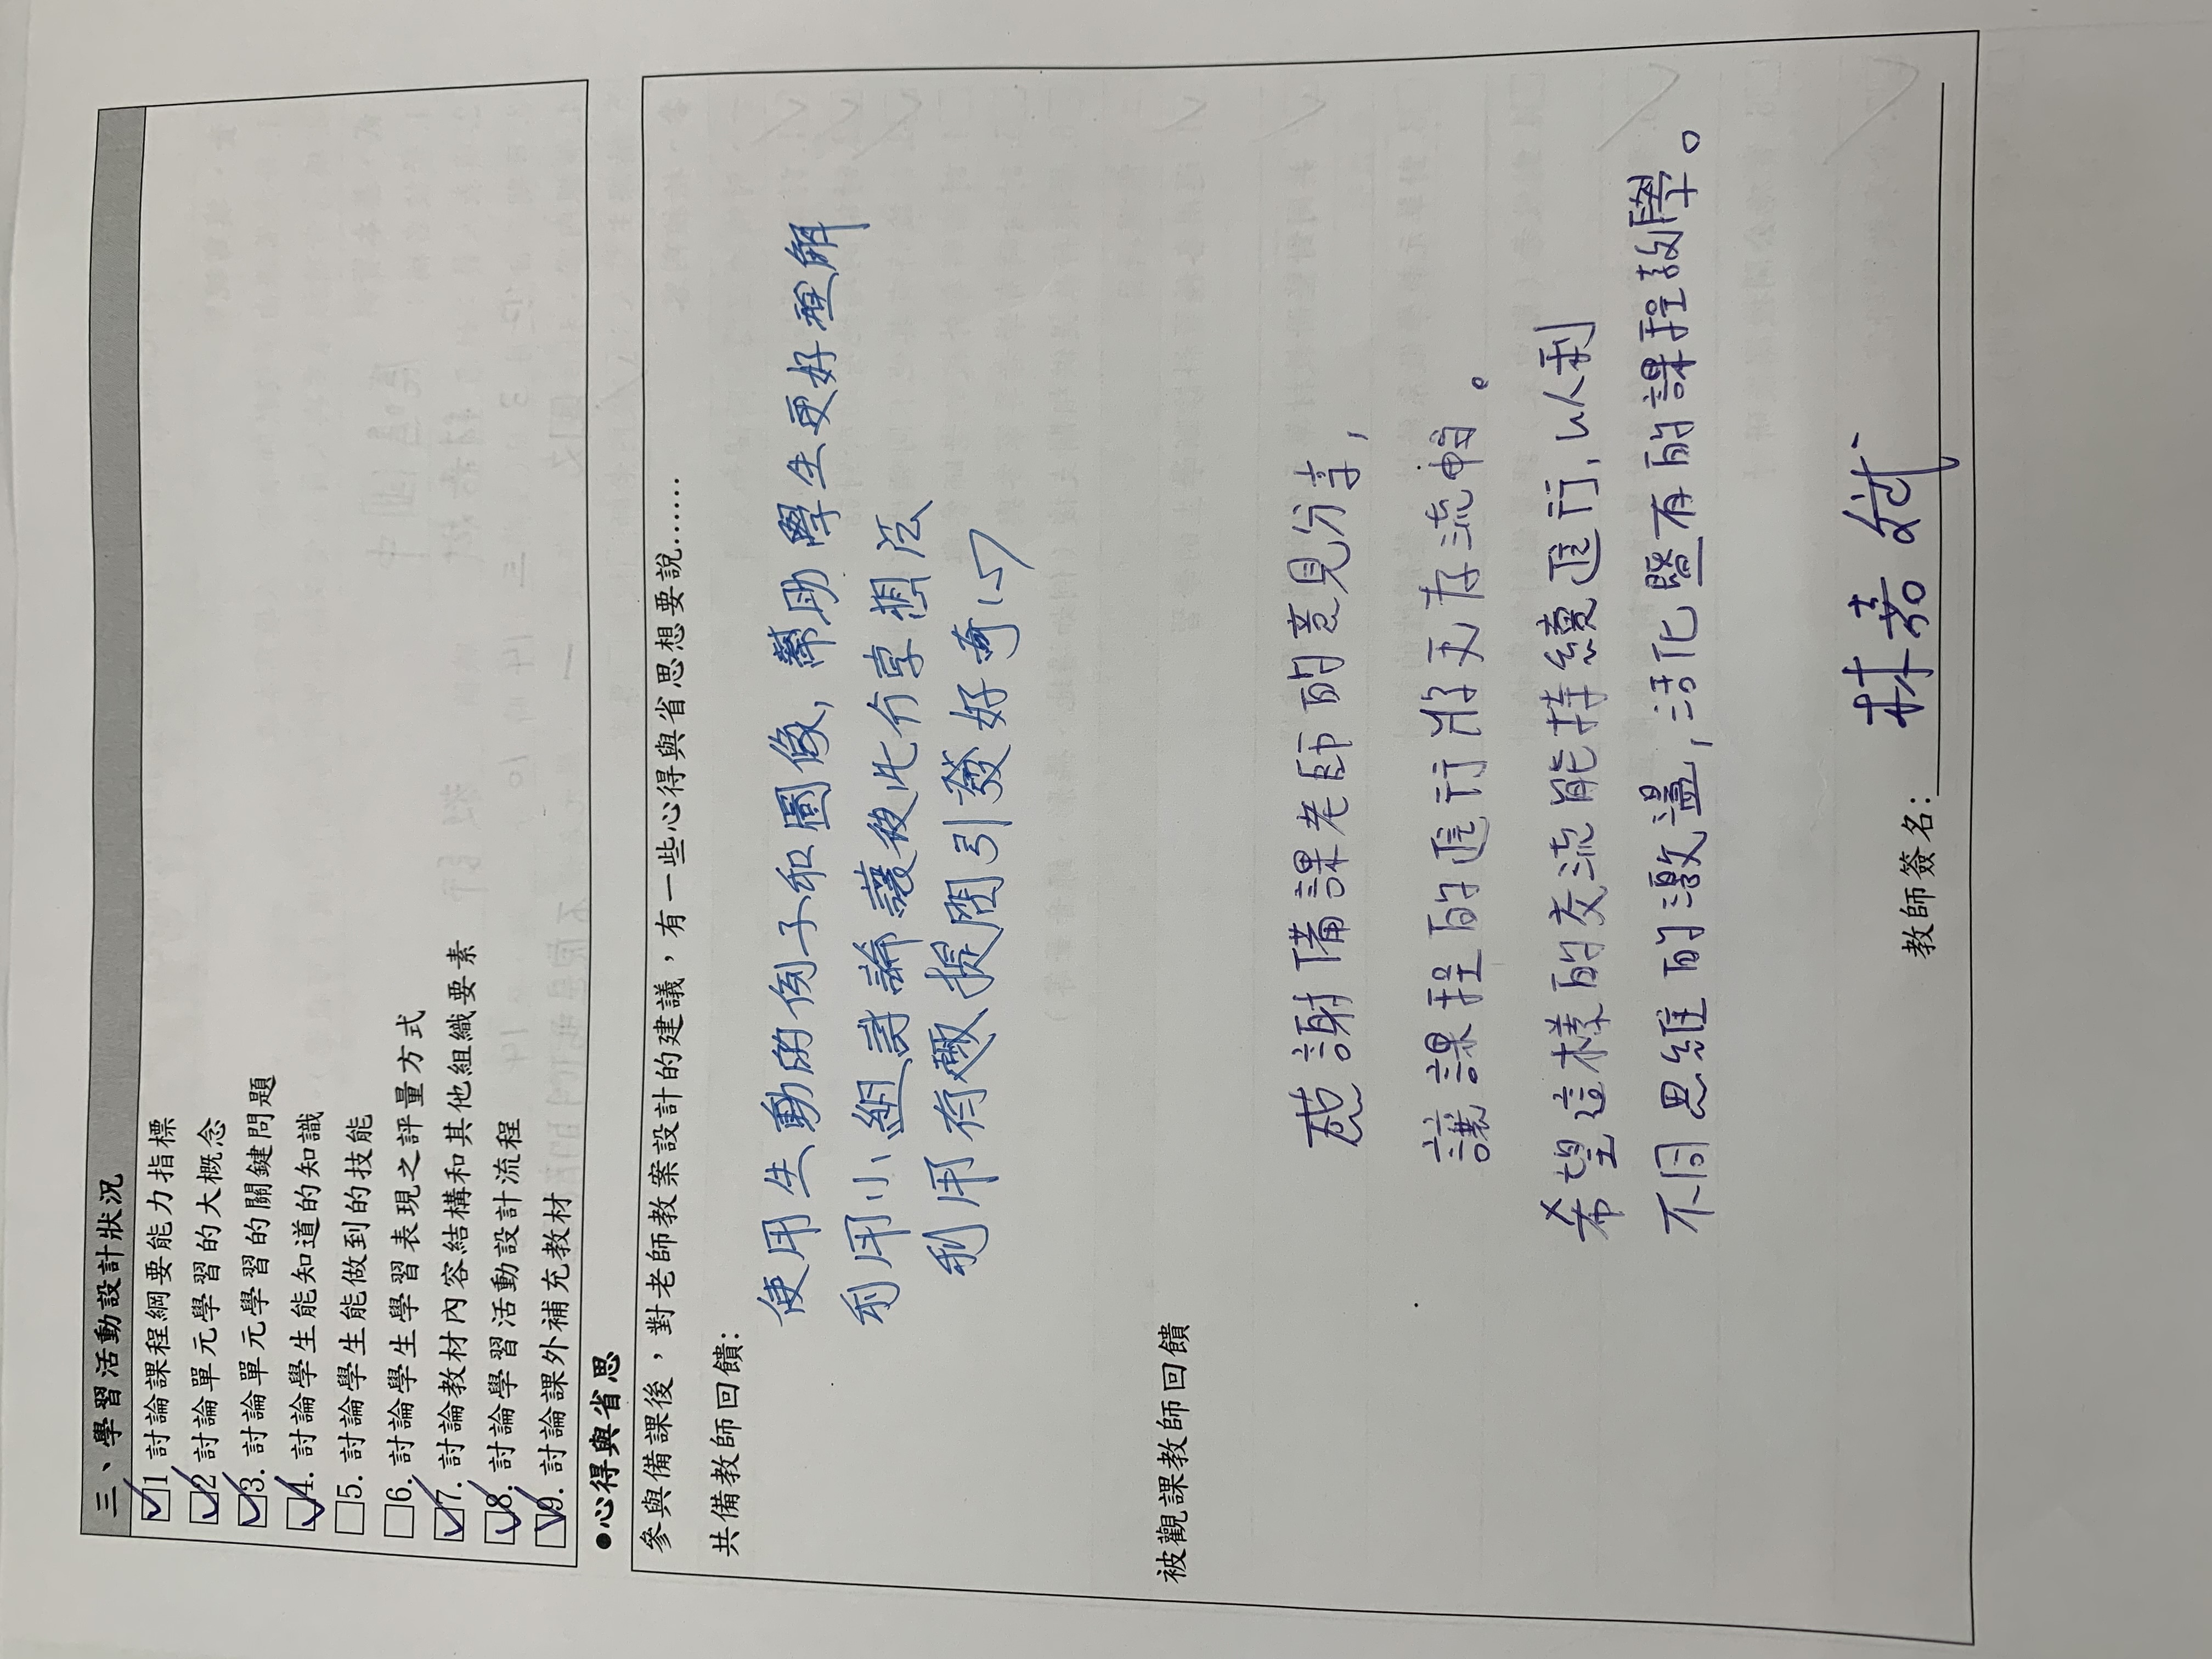 三、學習活動設計狀況
☑1 討論課程綱要能力指標
☑2 討論單元學習的大概念
☑3. 討論單元學習的關鍵問題
☑4. 討論學生能知道的知識
□5. 討論學生能做到的技能
□6. 討論學生學習表現之評量方式
☑7. 討論教材內容結構和其他組織要素
☑8. 討論學習活動設計流程
☑9. 討論課外補充教材
●心得與省思
參與備課後，對老師教案設計的建議，有一些心得與省思想要說……
共備教師回饋：
使用生動的例子和圖像，幫助學生更好理解
利用小組討論讓彼此分享想法
利用有趣提問引發好奇心
被觀課教師回饋
感謝備課老師的意見分享，
讓課程的進行將更存流暢。
希望這樣的交流能持續進行，以利
不同思維的激盪，活化暨有的課程教學。
教師簽名：林嘉斌